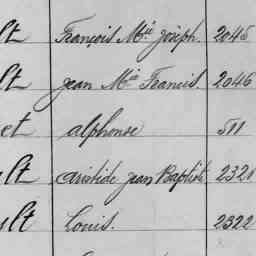 lt François Mie Joseph. 2045
lt Jean Mie Francis. 2046
et Alphonse 511
lt Aristide Jean Baptiste 2321
lt Louis. 2322